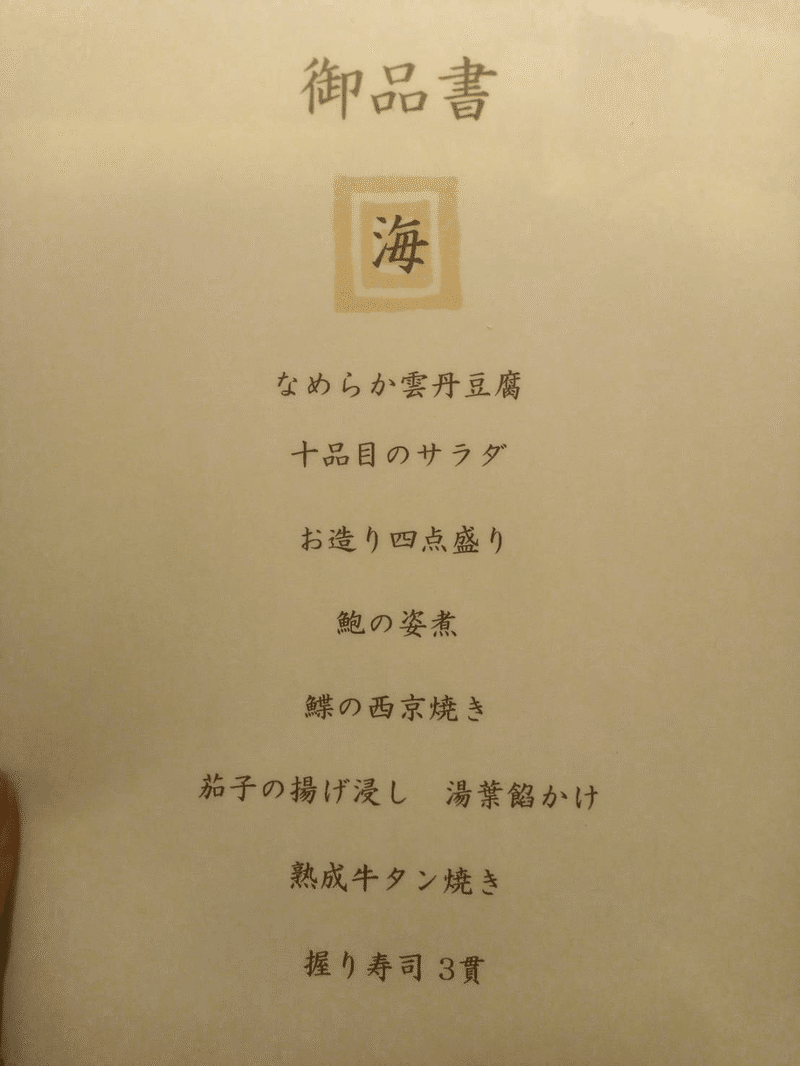 御品書
海
なめらか雲丹豆腐
十品目のサラダ
お造り四点盛り
鮑の姿煮
鰈の西京焼き
茄子の揚げ浸し　湯葉餡かけ
熟成牛タン焼き
握り寿司 3貫